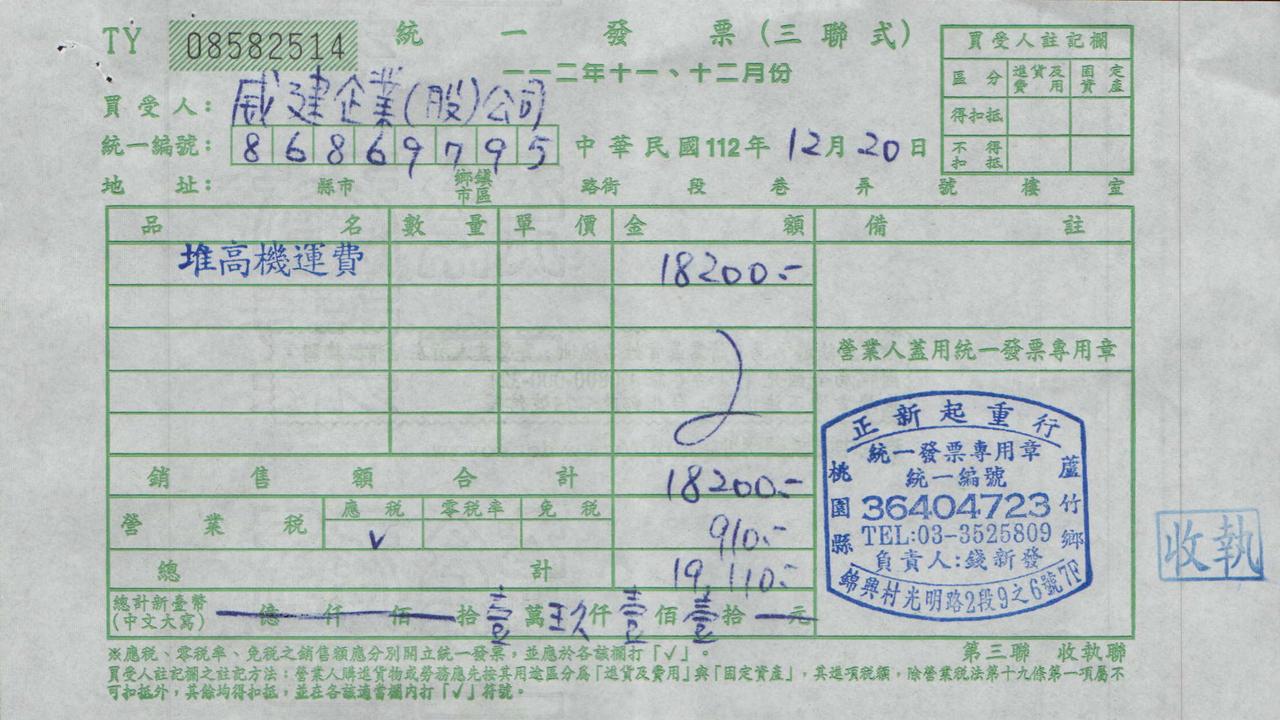 TY 08582514 統一發票(三聯式)
一一二年十一、十二月份
買受人: 威建企業(股)公司
統一編號: 86869795 中華民國112年12月20日
地址: 縣市 鄉鎮市區 路街 段 巷 弄 號 樓 室
買受人註記欄
區分 進貨及費用 固定資產
得扣抵
不得扣抵
品名 數量 單價 金額 備註
堆高機運費 18200.-
營業人蓋用統一發票專用章
銷售額合計 18200.-
營業稅 應稅 零稅率 免稅 910.-
V
總計 19,110.-
總計新臺幣(中文大寫) 億 仟 佰 拾 壹 萬 玖 仟 壹 佰 壹 拾 元
正新起重行
統一發票專用章
統一編號
36404723
TEL:03-3525809
負責人:錢新發
桃園縣 蘆竹鄉
錦興村光明路2段9之6號7F
收執
第三聯 收執聯
※應稅、零稅率、免稅之銷售額應分別開立統一發票,並應於各該欄打「√」。
買受人註記欄之註記方法:營業人購進貨物或勞務應先按其用途區分為「進貨及費用」與「固定資產」,其進項稅額,除營業稅法第十九條第一項屬不
可扣抵外,其餘均得扣抵,並在各該適當欄內打「√」符號。